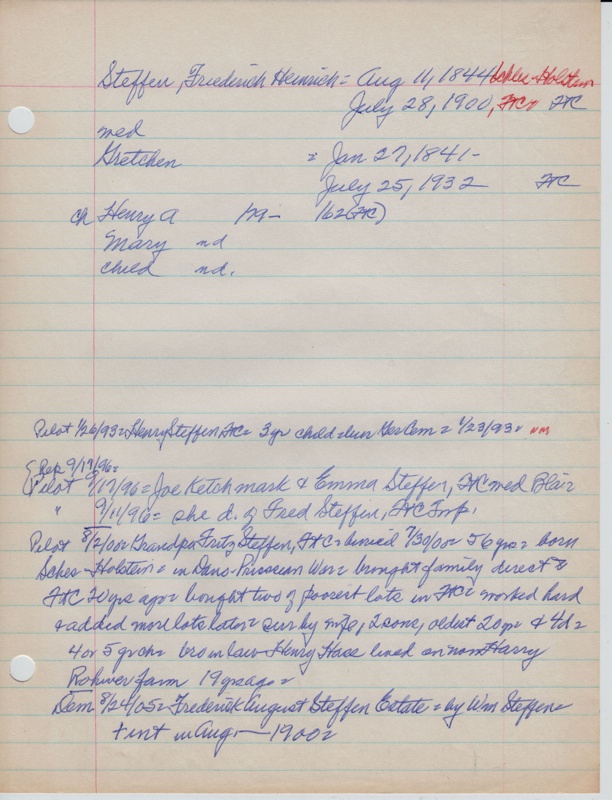 Steffen, Friederich Heinrich = Aug 11, 1844 Schles-Holstein
July 28, 1900, FtC FtC
med
Gretchen = Jan 27, 1841-
July 25, 1932 FtC
ch Henry A 179- 162 (FtC)
Mary nd
child nd.
Pilot 1/26/93 = Henry Steffen FtC = 3 yr child = bur Ger Cem = 1/23/93 = nm
Rep 9/17/96 =
Pilot 9/17/96 = Joe Ketchmark & Emma Steffen, FtC med Blair
" 9/11/96 = she d. of Fred Steffen, FtC Twp.
Pilot 8/2/00 = Grandpa Fritz Steffen, FtC = buried 7/30/00 = 56 yrs = born
Schles-Holstein = in Dano-Prussian War = brought family direct to
FtC 20 yrs ago = bought two of poorest lots in FtC = worked hard
& added more lots later = sur by wife, 2 sons, oldest 20 yr & 4 d =
4 or 5 grch = bro in law Henry Hass lived on now Harry
Rohwer farm 19 yrs ago =
Dem 8/24/05 = Frederick August Steffen Estate = by Wm Steffen =
+ int in Aug. — 1900 =